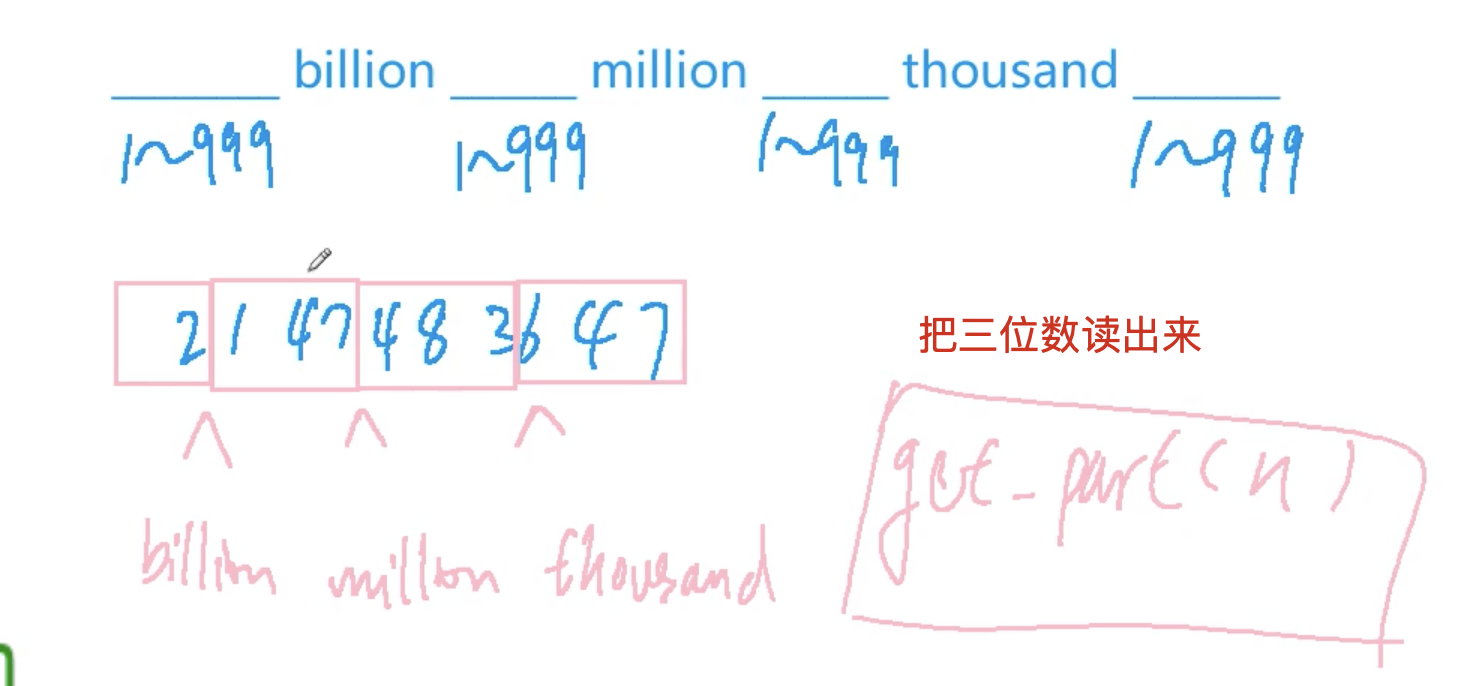 billion million thousand
1~999 1~999 1~999 1~999
2 147 483 647
把三位数读出来
get_part(n)
billion million thousand